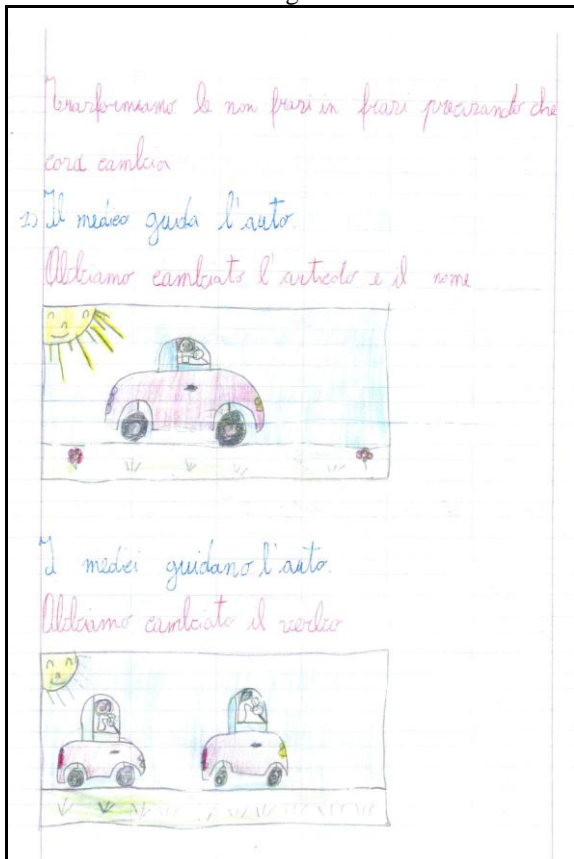 Trasformiamo le non frasi in frasi precisando che
cosa cambia
1) Il medico guida l'auto.
Abbiamo cambiato l'articolo e il nome
I medici guidano l'auto.
Abbiamo cambiato il verbo